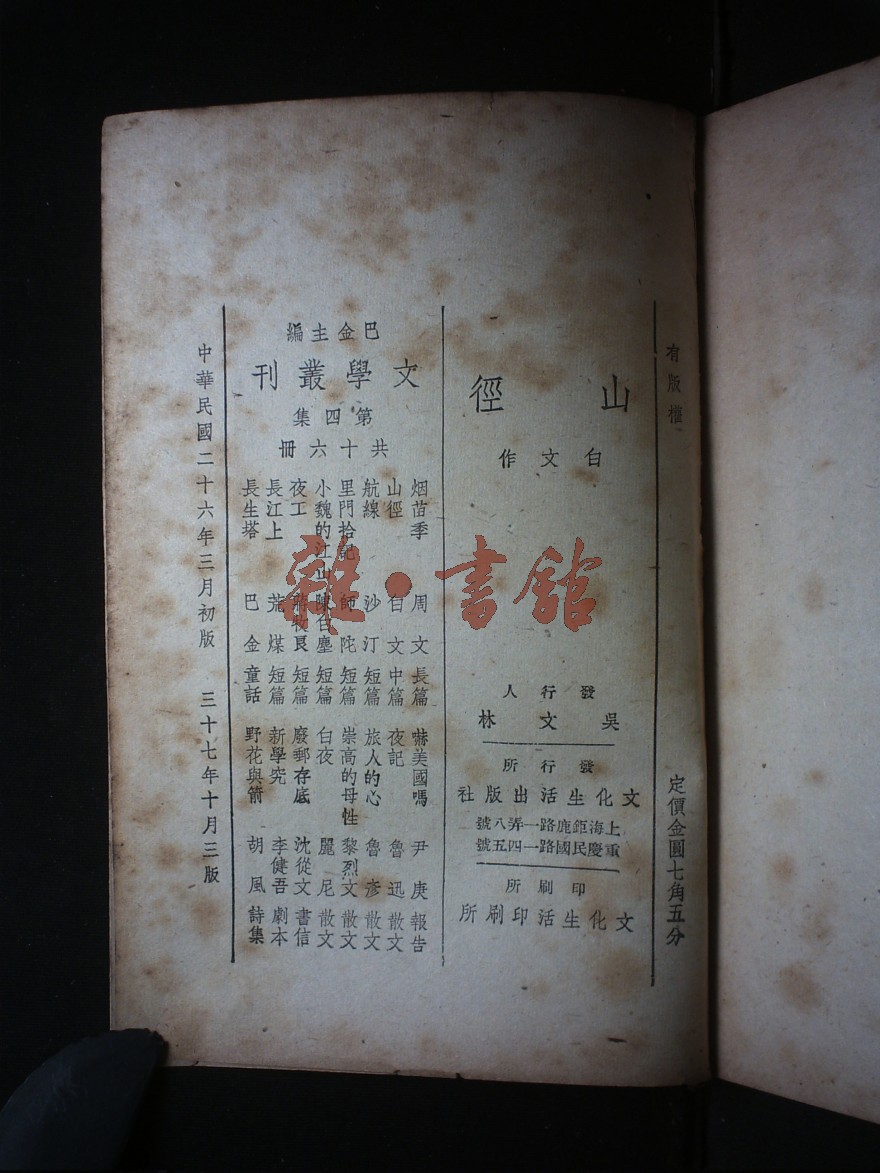 有版權
定價金圓七角五分
山徑
白文作
發行人
吳文林
發行所
文化生活出版社
上海鉅鹿路一弄八號
重慶民國路一四五號
印刷所
文化生活印刷所
巴金主編
文學叢刊
第四集
共十六冊
烟苗季 周文 長篇
山徑 白文 中篇
航線 沙汀 短篇
里門拾記 師陀 短篇
小魏的江山 陳白塵 短篇
夜工 蔣牧良 短篇
長江上 荒煤 短篇
長生塔 巴金 童話
嚇美國嗎 尹庚 報告
夜記 魯迅 散文
旅人的心 魯彥 散文
崇高的母性 黎烈文 散文
白夜 麗尼 散文
廢郵存底 沈從文 書信
新學究 李健吾 劇本
野花與箭 胡風 詩集
中華民國二十六年三月初版 三十七年十月三版
雜·書館